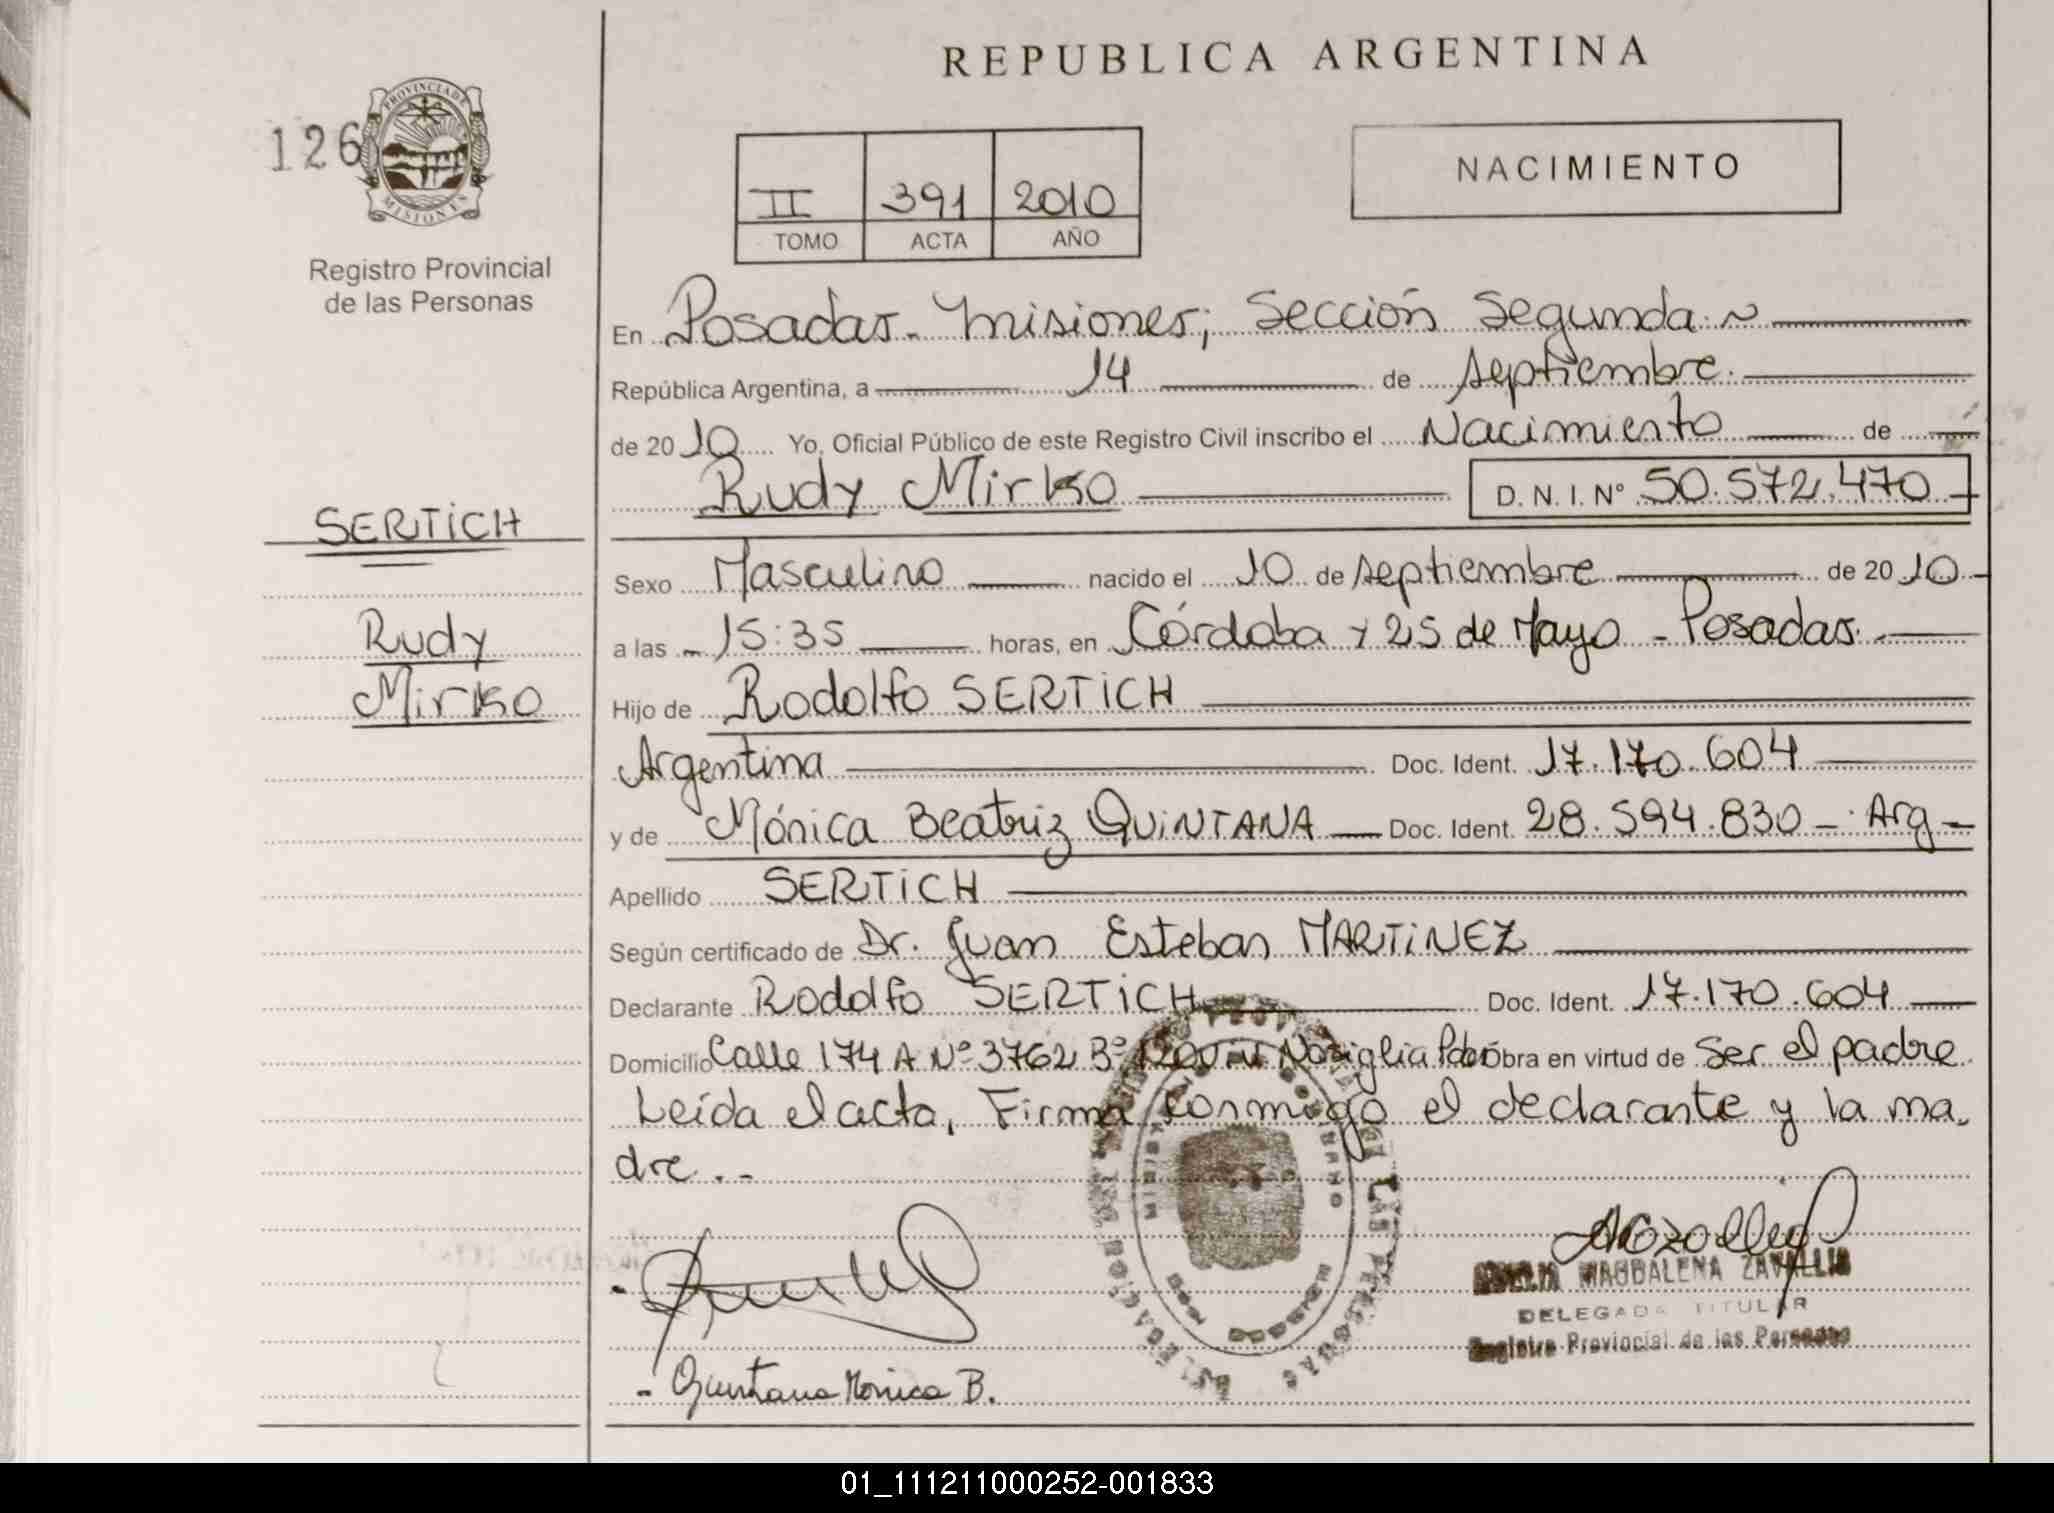 REPUBLICA ARGENTINA
126
PROVINCIA DE
MISIONES
Registro Provincial
de las Personas
II 391 2010
TOMO ACTA AÑO
NACIMIENTO
En Posadas - Misiones; Sección Segunda.~
República Argentina, a 14 de septiembre.
de 2010 Yo, Oficial Público de este Registro Civil inscribo el Nacimiento de
Rudy Mirko D. N. I. Nº 50.572.470
SERTiCH
Rudy
Mirko
Sexo Masculino nacido el 10 de septiembre de 2010
a las - 15:35 horas, en Córdoba y 25 de Mayo - Posadas.
Hijo de Rodolfo SERTiCH
Argentina Doc. Ident. 17.170.604
y de Mónica Beatriz QUiNTANA Doc. Ident. 28.594.830 - Arg -
Apellido SERTiCH
Según certificado de Dr. Juan Esteban MARTiNEZ
Declarante Rodolfo SERTiCH Doc. Ident. 17.170.604
Domicilio Calle 174 A Nº 3762 Bº Nosiglia Obra en virtud de Ser el padre
Leída el acta, Firma conmigo el declarante y la ma.
dre . -
- Quintana Monica B.
MAGDALENA ZAVALLIO
DELEGADA TITULAR
Registro Provincial de las Personas
01_111211000252-001833